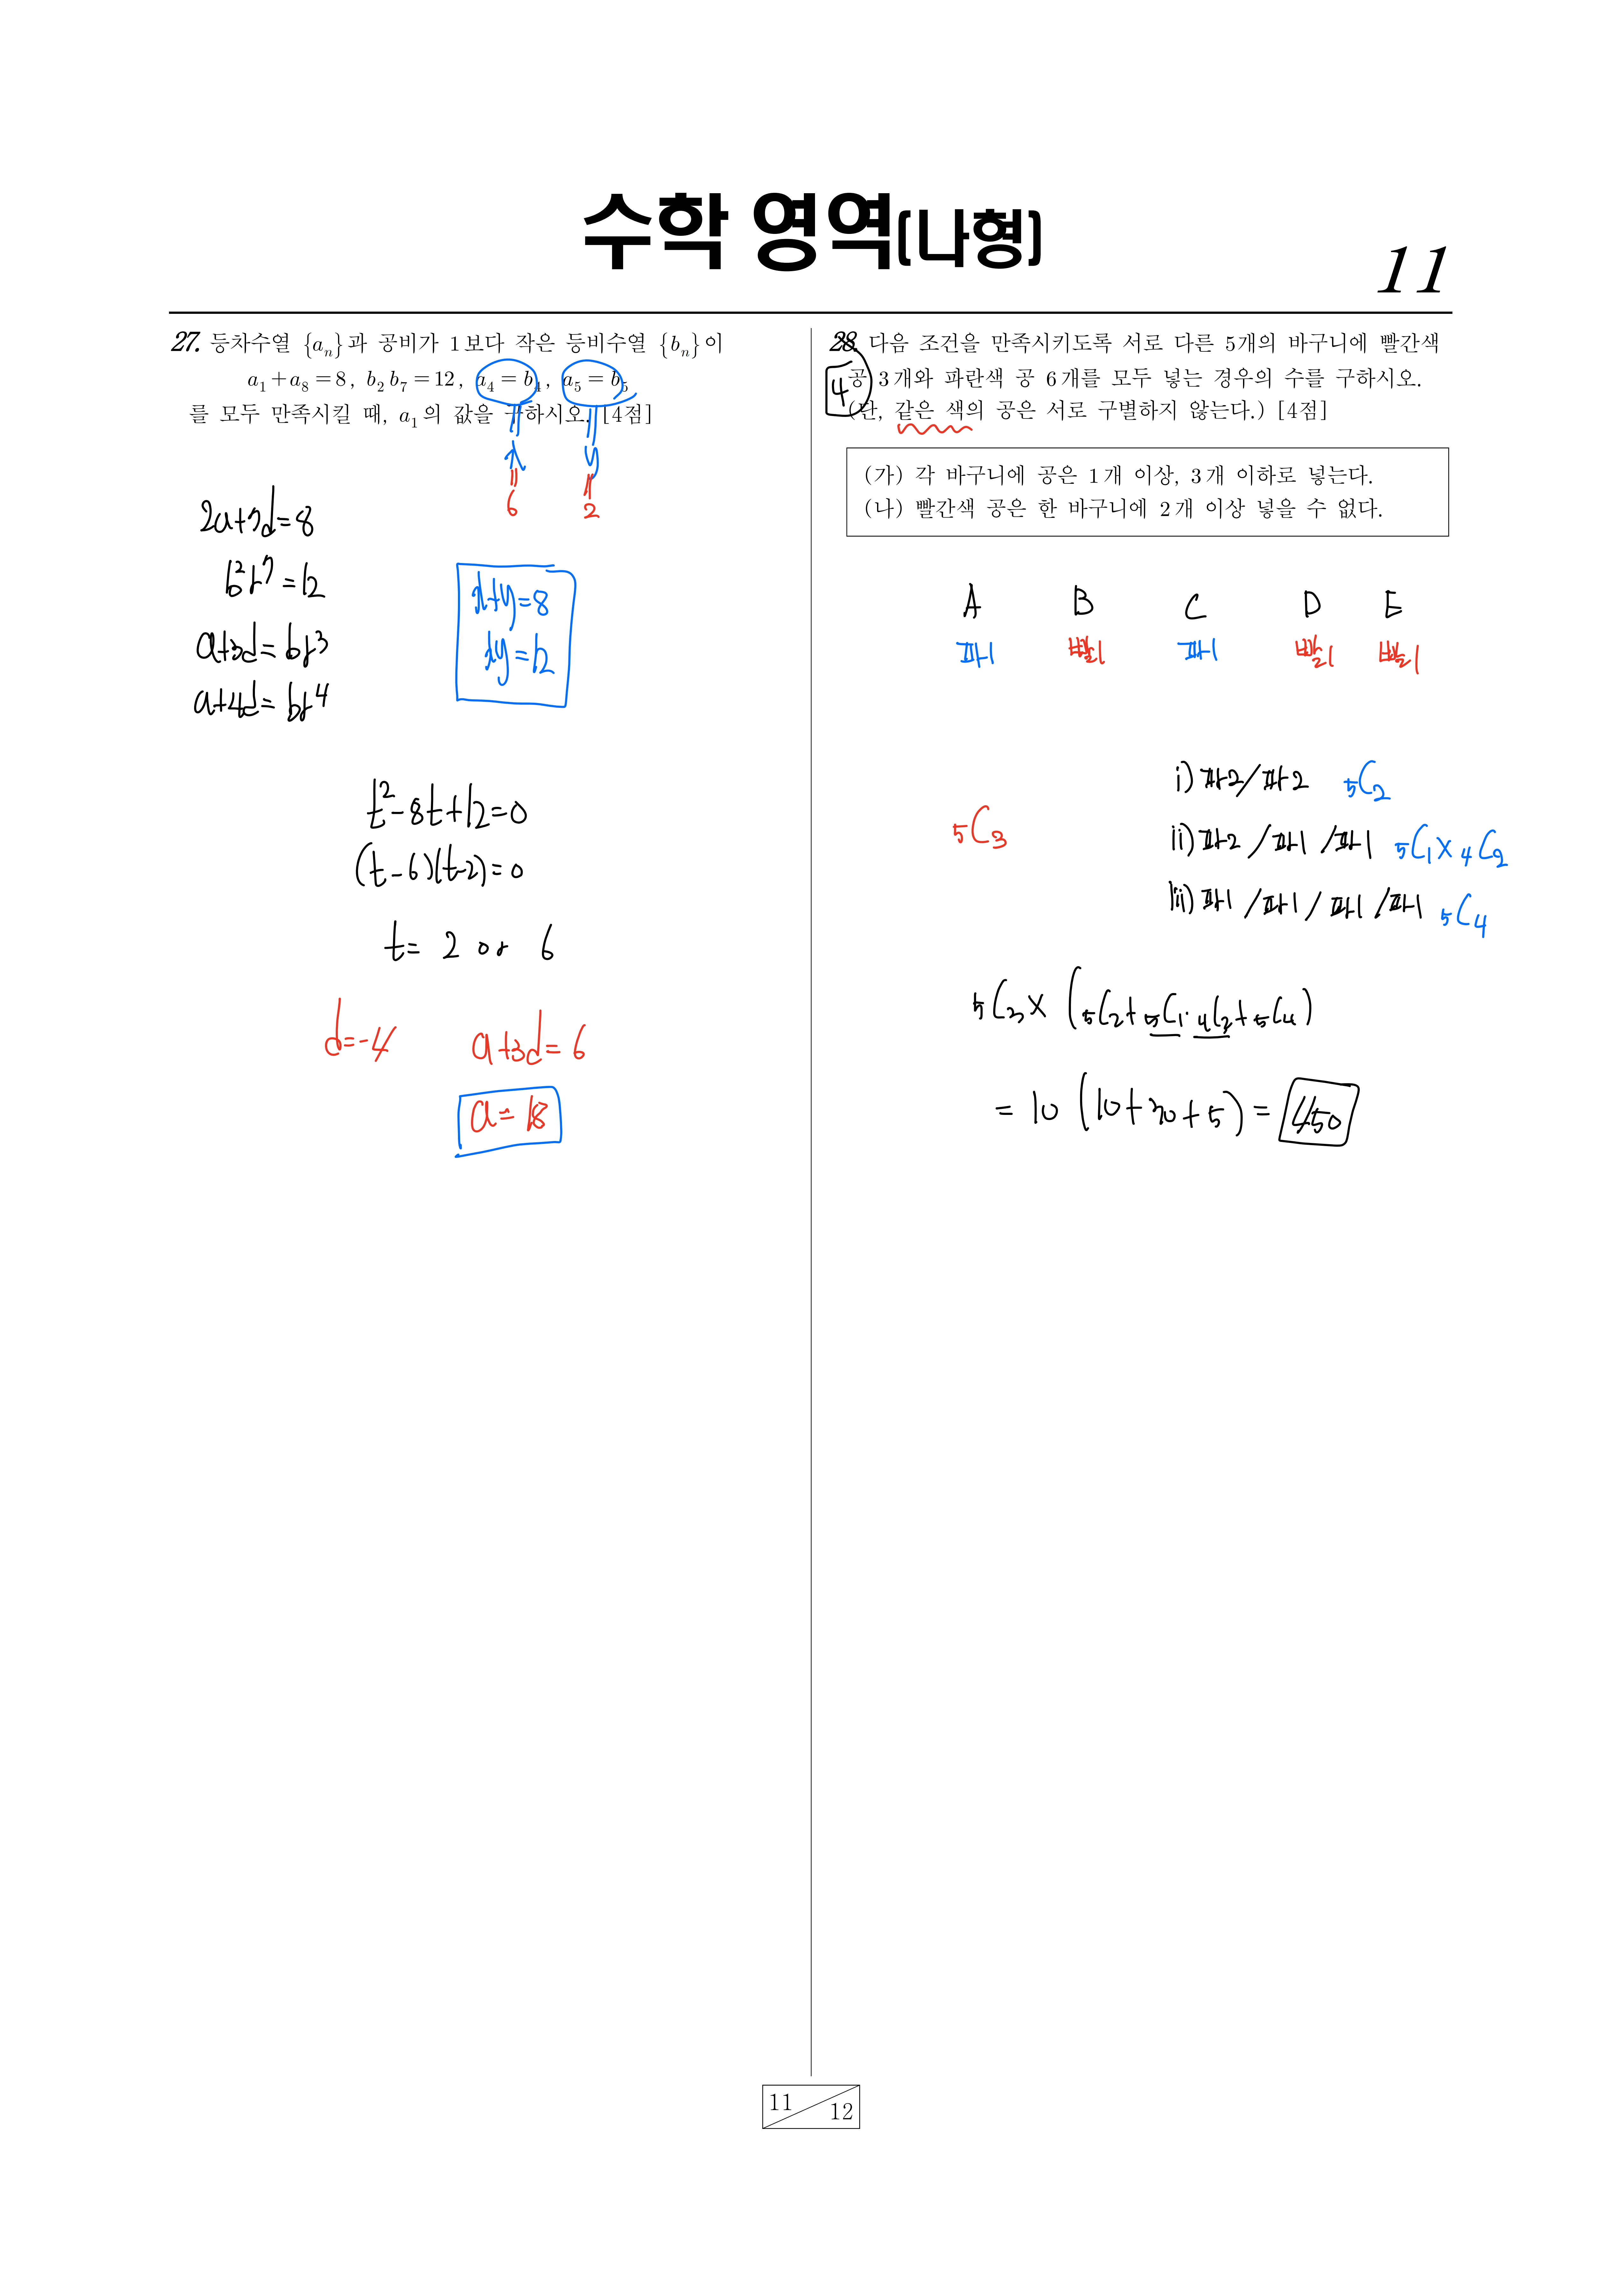 수학 영역(나형)
11
27. 등차수열 {aₙ}과 공비가 1보다 작은 등비수열 {bₙ}이
a₁+a₈=8, b₂b₇=12, a₄=b₄, a₅=b₅
를 모두 만족시킬 때, a₁의 값을 구하시오. [4점]
x
y
6
2
2a+7d=8
b²r⁷=12
a+3d=br³
a+4d=br⁴
x+y=8
xy=12
t²-8t+12=0
(t-6)(t-2)=0
t= 2 or 6
d=-4
a+3d=6
a=18
28. 다음 조건을 만족시키도록 서로 다른 5개의 바구니에 빨간색
공 3개와 파란색 공 6개를 모두 넣는 경우의 수를 구하시오.
(단, 같은 색의 공은 서로 구별하지 않는다.) [4점]
4
(가) 각 바구니에 공은 1개 이상, 3개 이하로 넣는다.
(나) 빨간색 공은 한 바구니에 2개 이상 넣을 수 없다.
A B C D E
파1 빨1 파1 빨1 빨1
i) 파2/파2 ₅C₂
₅C₃
ii) 파2/파1/파1 ₅C₁×₄C₂
iii) 파1/파1/파1/파1 ₅C₄
₅C₃×(₅C₂+₅C₁·₄C₂+₅C₄)
=10(10+30+5)=450
11
12